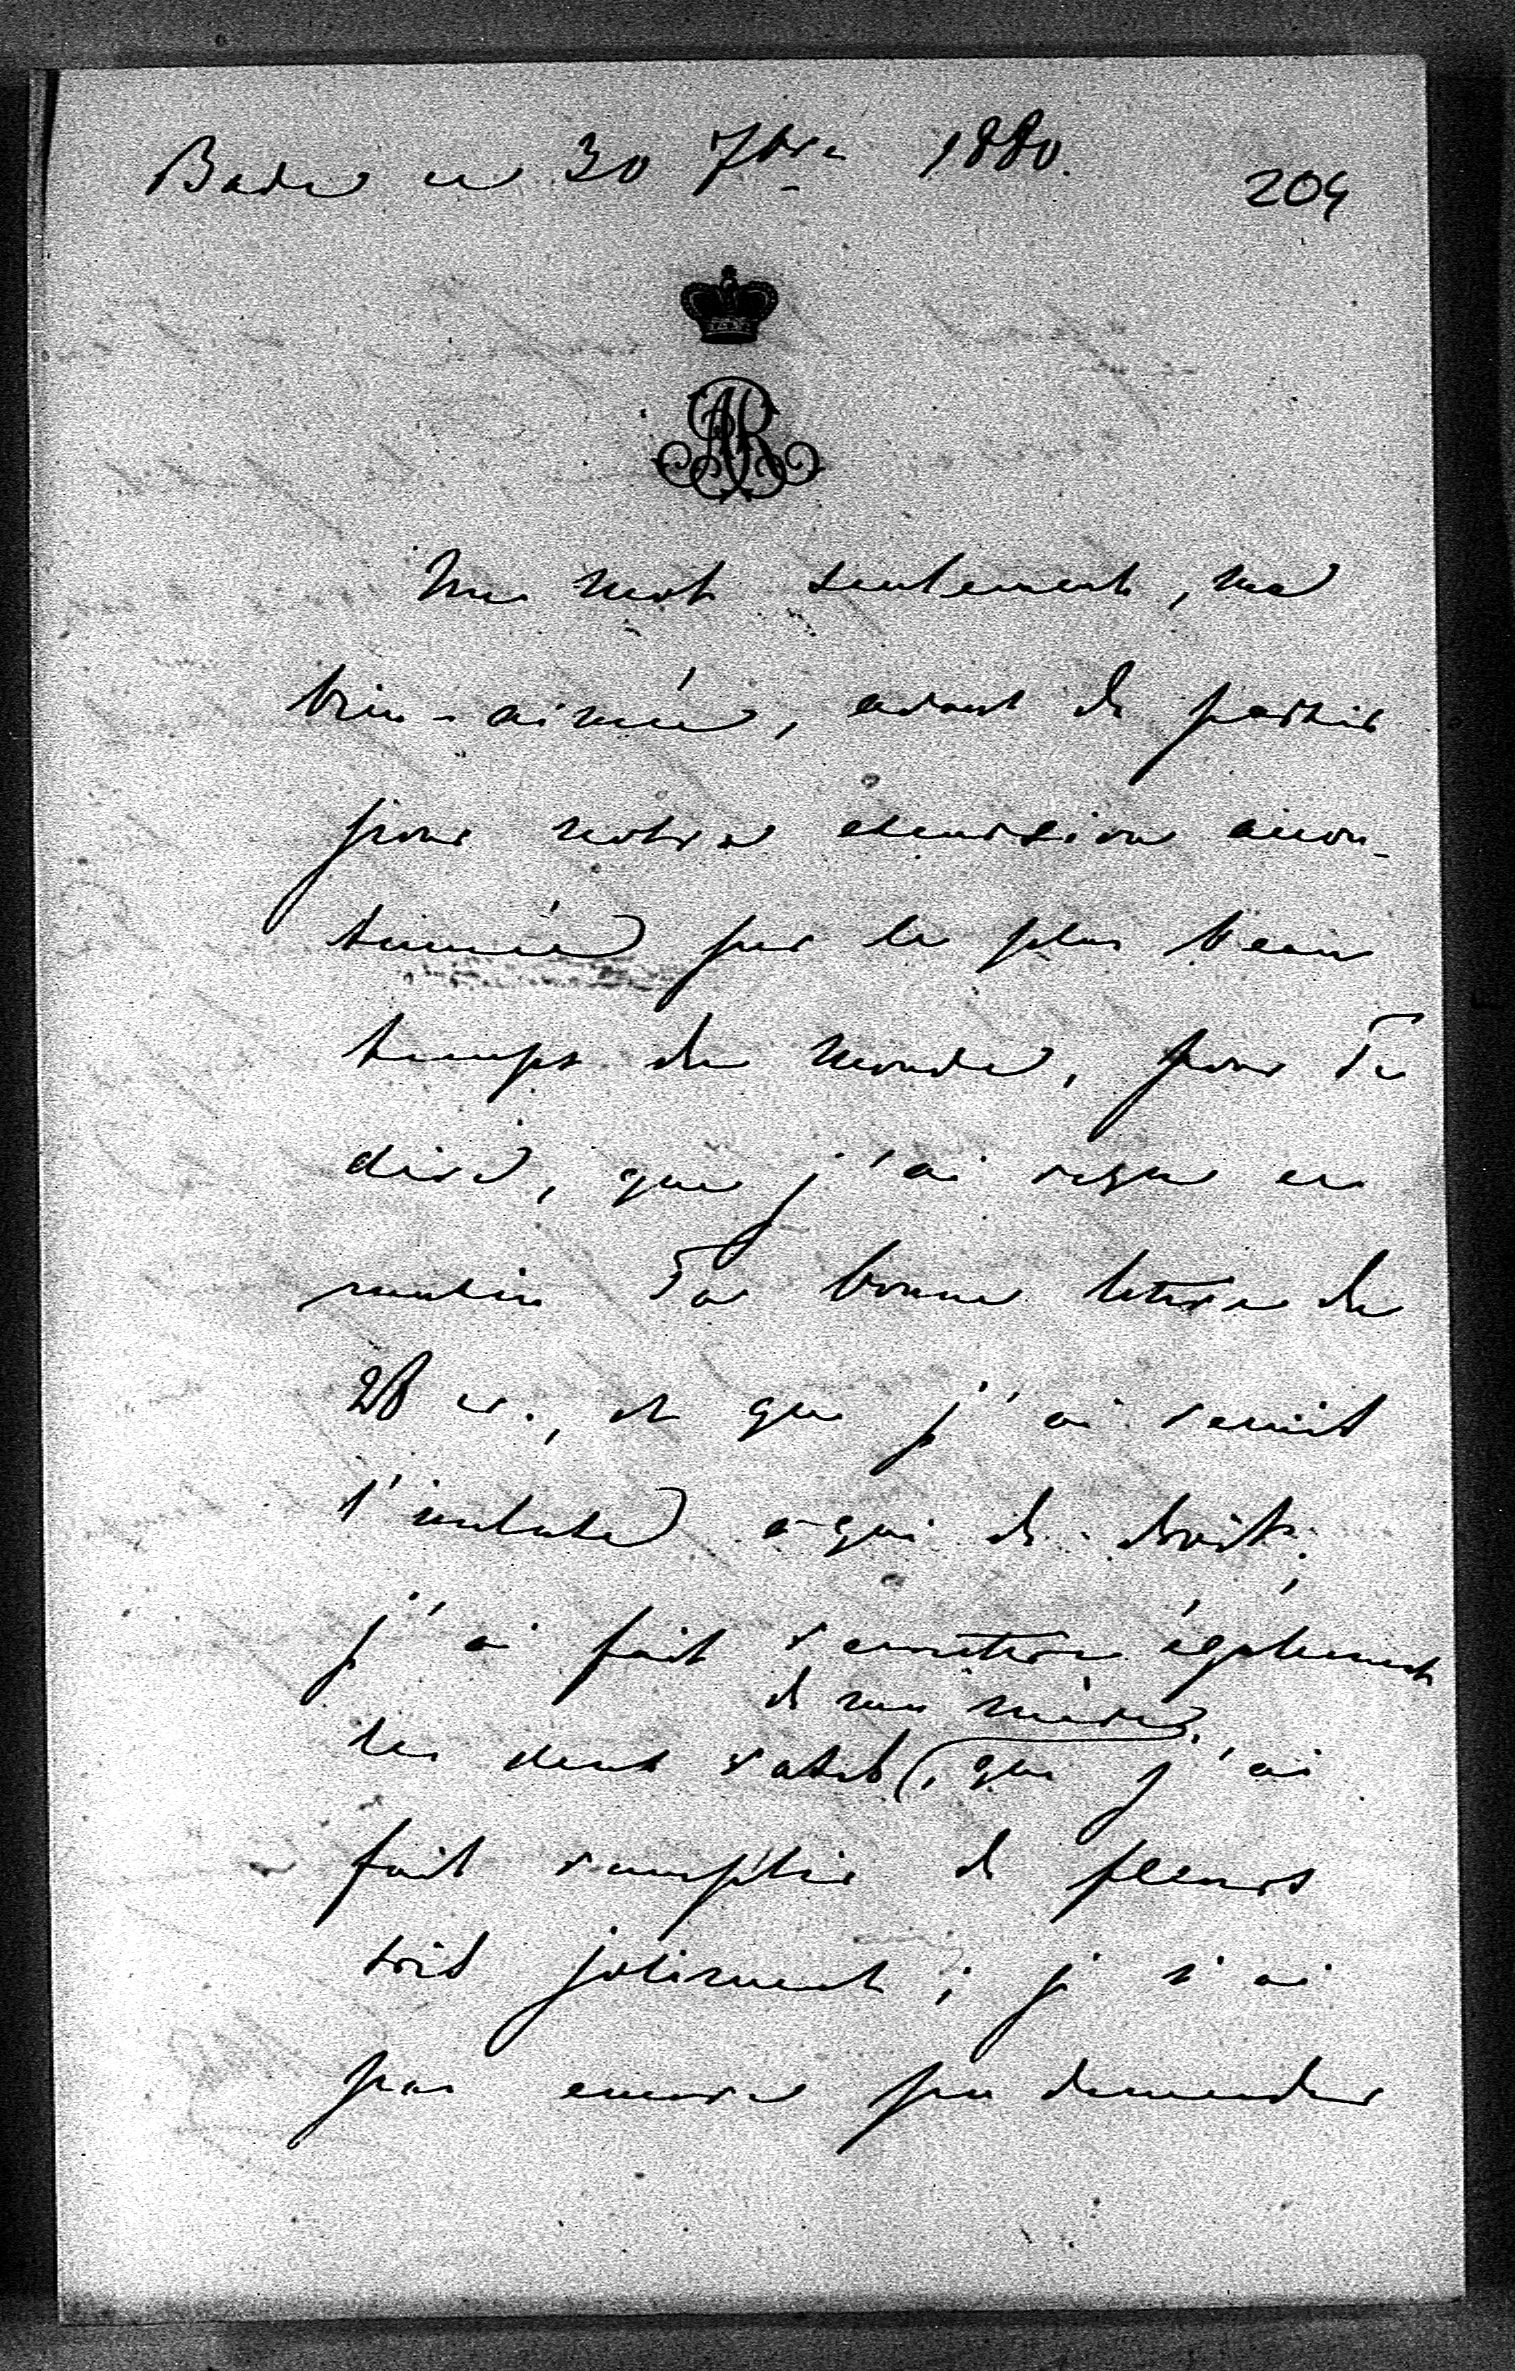 Bade ce 30 7bre 1880.
204
AR
Un mot seulement, ma
bien-aimée, avant de partir
pour notre excursion accou-
tumée par le plus beau
temps du monde, pour Te
dire, que j'ai reçu ce
matin Ta bonne lettre du
28 cr., et que j'ai remis
l'incluse à qui de droit;
j'ai fait remettre également
de ma mère
les deux vases, que j'ai
fait remplir de fleurs
très joliment; je n'ai
pas encore pu demander